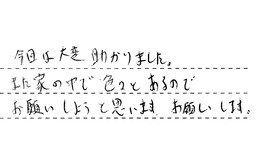 今回は大変助かりました。
また家の中で色々とあるので
お願いしようと思います お願いします。